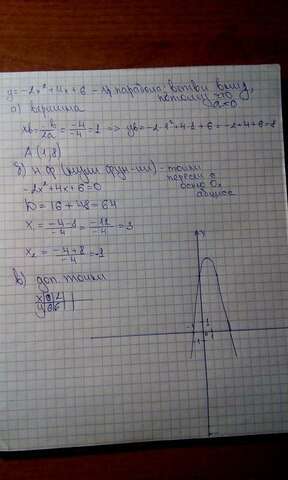 y=-2x²+4x+6 - кв. парабола; ветви вниз,
потому что
a<0
а) вершина
xв=-b/2a=-4/-4=1 => yв=-2·1²+4·1+6=-2+4+6=8
A (1;8)
б) н.ф. (нули фун-ии) - точки
пересеч. с
осью Ox
абцисс
-2x²+4x+6=0
D=16+48=64
x₁=-4-8/-4=-12/-4=3
x₂=-4+8/-4=-1
в) доп. точки
x|0|2|
y|6|6|
y
-1 1
0 1